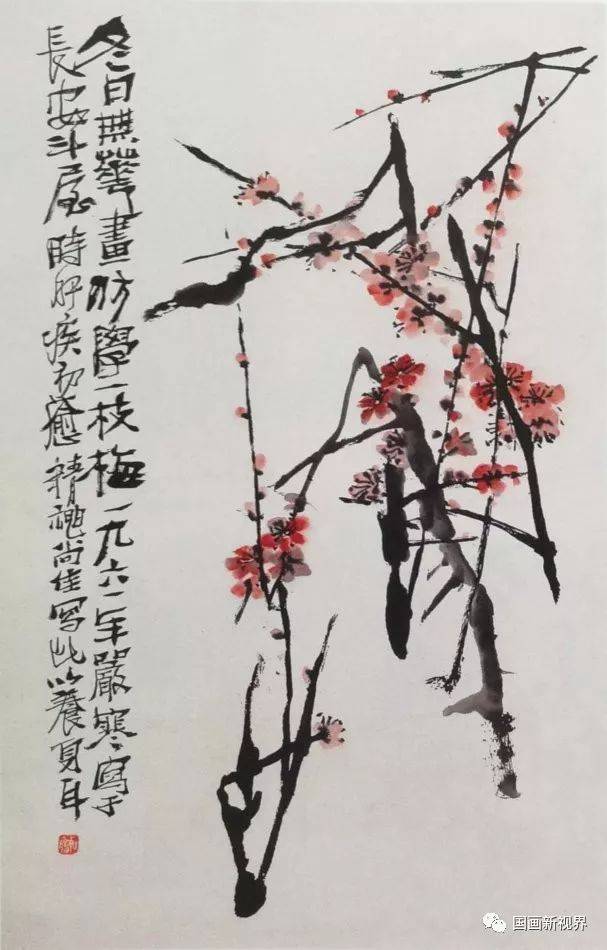 冬日無華畫學一枝梅一九六一年嚴寒寫于
長安斗屋時肝疾初癒精魂尚佳寫此以養身耳
国画新视界